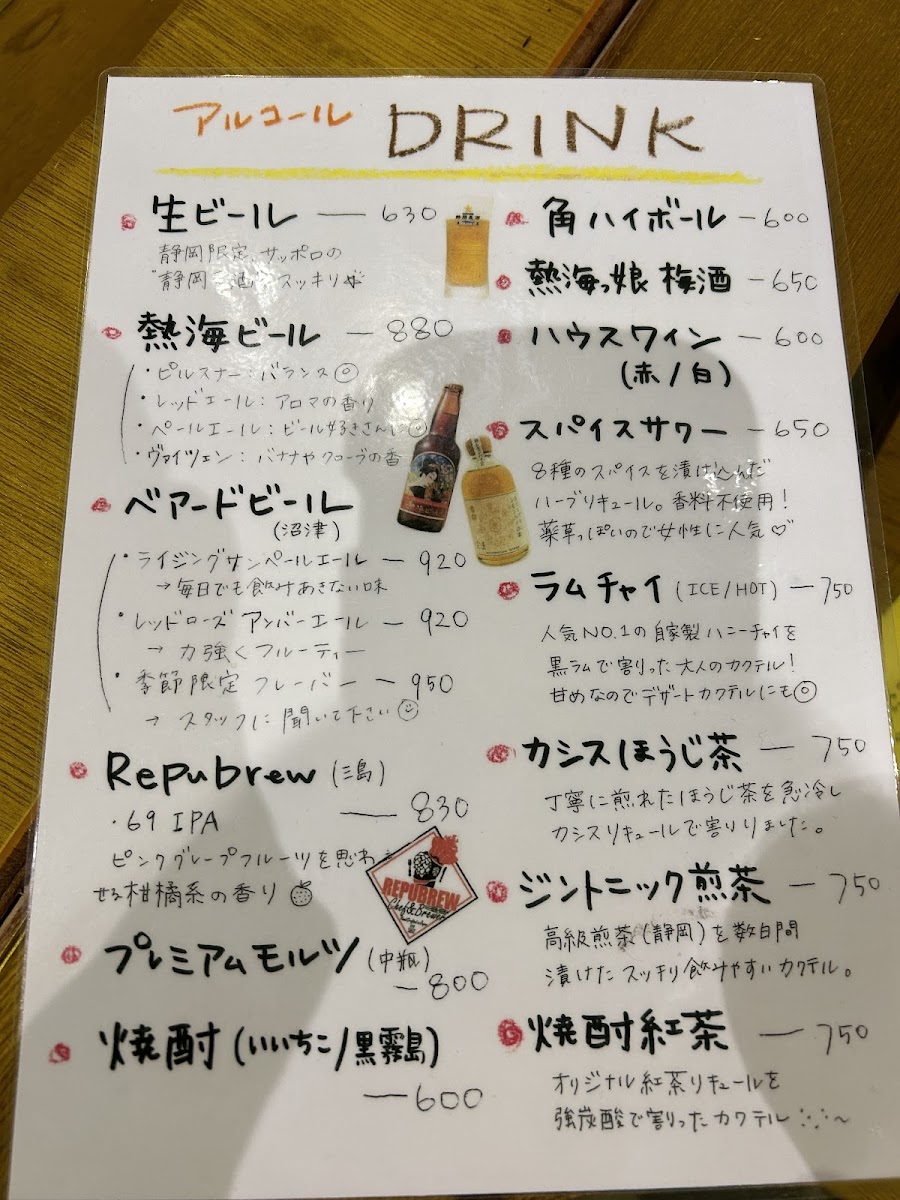 アルコール DRINK
生ビール — 630
静岡限定、サッポロの
"静岡 酒" スッキリ
熱海ビール — 880
・ピルスナー：バランス◎
・レッドエール：アロマの香り
・ペールエール：ビール好きさんに
・ヴァイツェン：バナナやクローブの香
ベアードビール
(沼津)
・ライジングサンペールエール — 920
→毎日でも飲みあきない味
・レッドローズ アンバーエール — 920
→ 力強くフルーティー
・季節限定 フレーバー — 950
→ スタッフに聞いて下さい
Repubrew (三島)
— 830
・69 IPA
ピンクグレープフルーツを思わ
せる柑橘系の香り
REPUBREW
Chef&Brewer
プレミアムモルツ (中瓶)
— 800
焼酎 (いいちこ/黒霧島)
— 600
角ハイボール — 600
熱海っ娘 梅酒 — 650
ハウスワイン — 600
(赤/白)
スパイスサワー — 650
8種のスパイスを漬け込んだ
ハーブリキュール。香料不使用！
薬草っぽいので女性に人気♡
ラムチャイ (ICE/HOT) — 750
人気NO.1の自家製ハニーチャイを
黒ラムで割った大人のカクテル！
甘めなのでデザートカクテルにも◎
カシスほうじ茶 — 750
丁寧に煎れたほうじ茶を急冷し
カシスリキュールで割りました。
ジントニック煎茶 — 750
高級煎茶(静岡)を数日間
漬けたスッキリ飲みやすいカクテル。
焼酎紅茶 — 750
オリジナル紅茶リキュールを
強炭酸で割ったカクテル